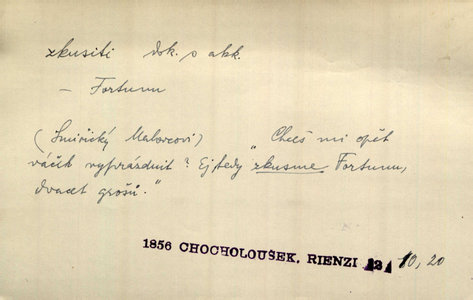 zkusiti dok. s akk.
– Fortunu
(Smiřický Malovcovi) „Chceš mi opět
váček vyprázdnit? Ej tedy zkusme Fortunu,
dvacet grošů.“
1856 CHOCHOLOUŠEK, RIENZI 10, 20